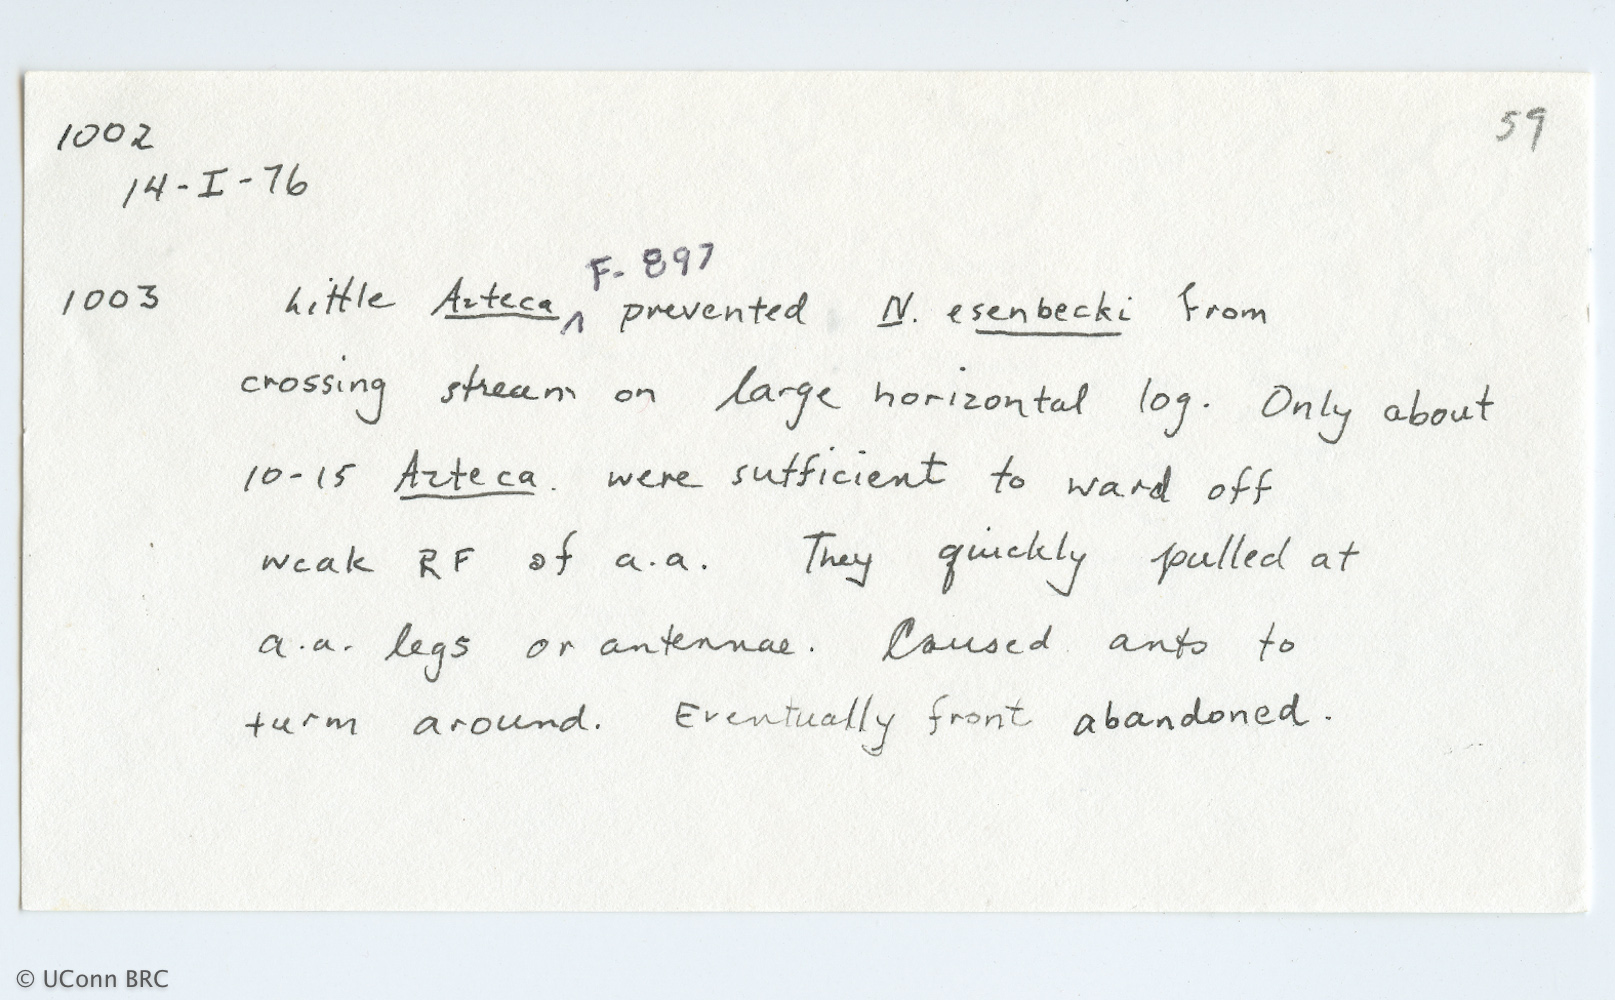 1002
59
14-I-76
F-897
1003 Little Azteca ^ prevented N. esenbecki from
crossing stream on large horizontal log. Only about
10-15 Azteca were sufficient to ward off
weak RF of a.a. They quickly pulled at
a.a. legs or antennae. Caused ants to
turn around. Eventually front abandoned.
© UConn BRC